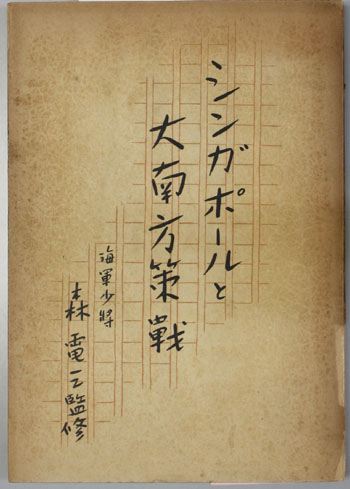 シンガポールと
大南方策戦
海軍少将
森電三監修